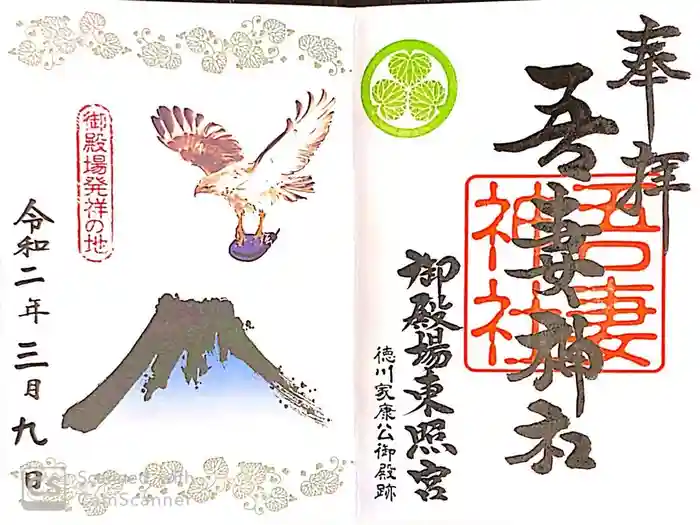 奉拝
吾妻神社
吾妻
神社
御殿場東照宮
徳川家康公御殿跡
御殿場発祥の地
令和二年三月九日
CS Scanned with
CamScanner